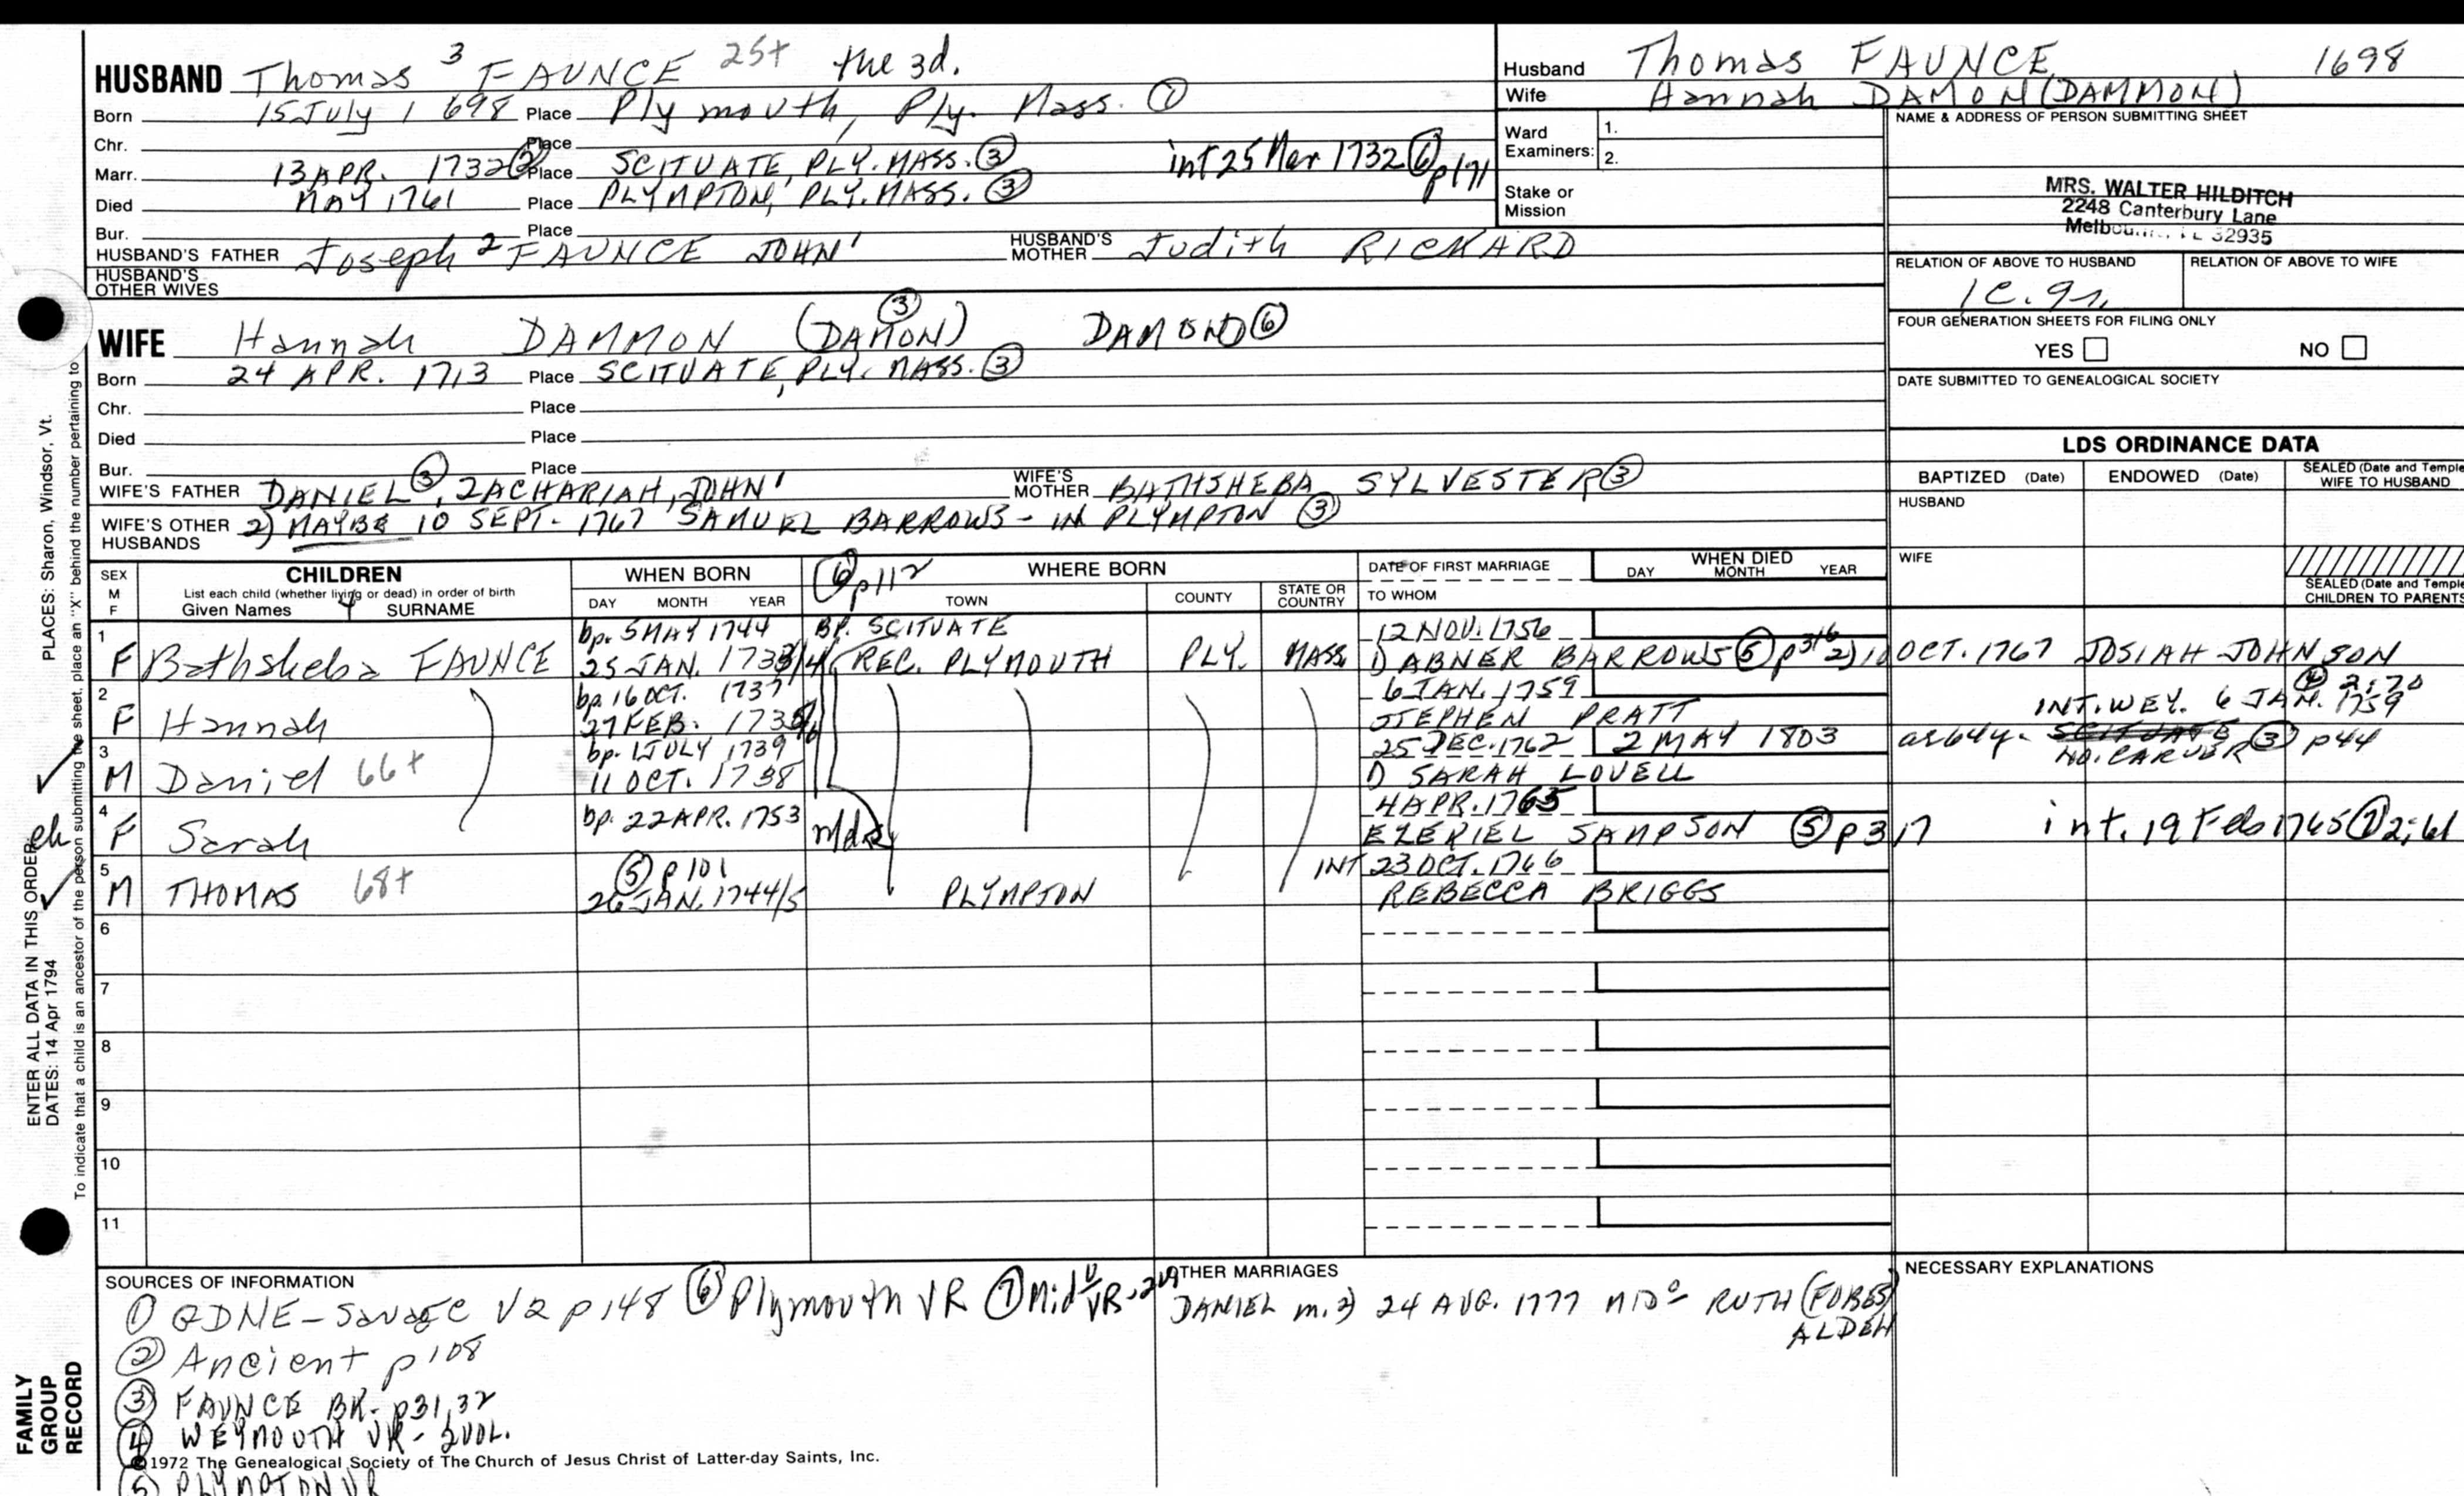 HUSBAND Thomas 3 FAUNCE 25+ the 3d.
Born 15 July 1698 Place Plymouth, Ply. Mass. ①
Chr. Place
Marr. 13 APR. 1732 ② Place SCITUATE, PLY. MASS. ③ int 25 Mar 1732 ⑥ p171
Died MAY 1761 Place PLYMPTON, PLY. MASS. ③
Bur. Place
HUSBAND'S FATHER Joseph 2 FAUNCE JOHN 1 HUSBAND'S MOTHER Judith RICKARD
HUSBAND'S OTHER WIVES
Husband Thomas FAUNCE 1698
Wife Hannah DAMON (DAMMON)
Ward Examiners: 1.
2.
Stake or Mission
NAME & ADDRESS OF PERSON SUBMITTING SHEET
MRS. WALTER HILDITCH
2248 Canterbury Lane
32935
RELATION OF ABOVE TO HUSBAND RELATION OF ABOVE TO WIFE
1c.gr.
FOUR GENERATION SHEETS FOR FILING ONLY
YES NO
DATE SUBMITTED TO GENEALOGICAL SOCIETY
WIFE Hannah DAMMON (DAMON) ③ DAMOND ⑥
Born 24 APR. 1713 Place SCITUATE, PLY. MASS. ③
Chr. Place
Died Place
Bur. Place
WIFE'S FATHER DANIEL ③, ZACHARIAH, JOHN 1 WIFE'S MOTHER BATHSHEBA SYLVESTER ③
WIFE'S OTHER HUSBANDS 2) MAYBE 10 SEPT. 1767 SAMUEL BARROWS - IN PLYMPTON ③
LDS ORDINANCE DATA
BAPTIZED (Date) ENDOWED (Date) SEALED (Date and Temple) WIFE TO HUSBAND
HUSBAND
WIFE
SEALED (Date and Temple) CHILDREN TO PARENTS
SEX M F
CHILDREN
List each child (whether living or dead) in order of birth
Given Names SURNAME
WHEN BORN
DAY MONTH YEAR
⑥ p112
WHERE BORN
TOWN COUNTY STATE OR COUNTRY
DATE OF FIRST MARRIAGE
TO WHOM
WHEN DIED
DAY MONTH YEAR
1 bp. 5 MAY 1744 BP. SCITUATE 12 NOV. 1756
F Bathsheba FAUNCE 25 JAN. 1733/4 REC. PLYMOUTH PLY. MASS 1) ABNER BARROWS ⑤ p316 2) 10 OCT. 1767 JOSIAH JOHNSON
2 bp. 16 OCT. 1737 6 JAN. 1759 ④ 2:70
F Hannah 27 FEB. 1735/6 STEPHEN PRATT INT. WEY. 6 JAN. 1759
3 bp. 1 JULY 1739 25 DEC. 1762 2 MAY 1803 ae 64y. SCITUATE ③ p44
M Daniel 66+ 11 OCT. 1738 1) SARAH LOVELL NO. CARVER
4 bp. 22 APR. 1753 4 APR. 1765
F Sarah EZERIEL SAMPSON ⑤ p317 int. 19 Feb 1765 ⑦ 2:61
5 ⑤ p101 INT 23 OCT. 1766
M THOMAS 68+ 26 JAN. 1744/5 PLYMPTON REBECCA BRIGGS
6
7
8
9
10
11
SOURCES OF INFORMATION
① GDNE - Savage V2 p148 ⑥ Plymouth VR ⑦ Mid VR-2
② Ancient p108
③ FAUNCE BK- p31,32
④ WEYMOUTH VR- 2 VOL.
©1972 The Genealogical Society of The Church of Jesus Christ of Latter-day Saints, Inc.
⑤ PLYMPTON VR
OTHER MARRIAGES
DANIEL m. 2) 24 AUG. 1777 RUTH (FOBES) ALDEN
NECESSARY EXPLANATIONS
PLACES: Sharon, Windsor, Vt.
ENTER ALL DATA IN THIS ORDER:
DATES: 14 Apr 1794
To indicate that a child is an ancestor of the person submitting the sheet, place an "X" behind the number pertaining to
FAMILY GROUP RECORD